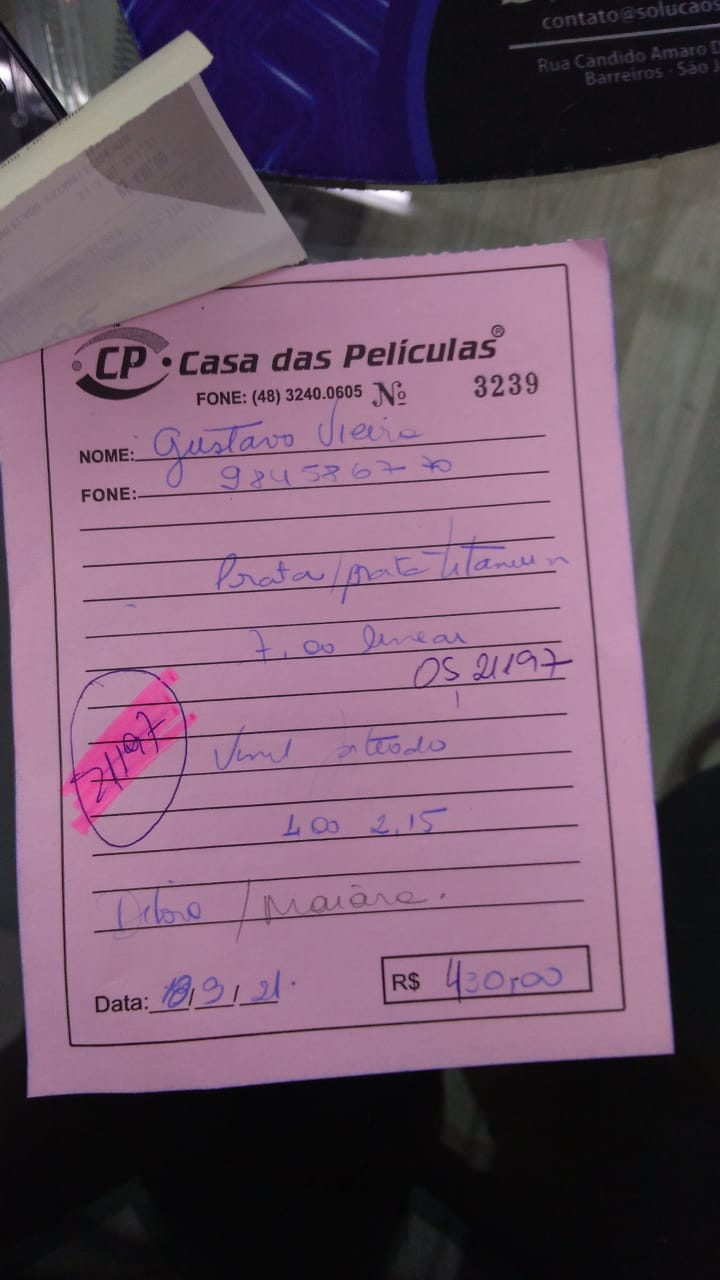 contato@solucaos
Rua Cândido Amaro D
Barreiros - São J
CP • Casa das Películas ®
FONE: (48) 3240.0605 Nº 3239
NOME: Gustavo Vieira
FONE: 984586770
Prata/prata titanium
7,00 linear
OS 21197
21197
Vinil jateado
1,00 2,15
Débora / Maiara.
Data: /9/21.
R$ 430,00